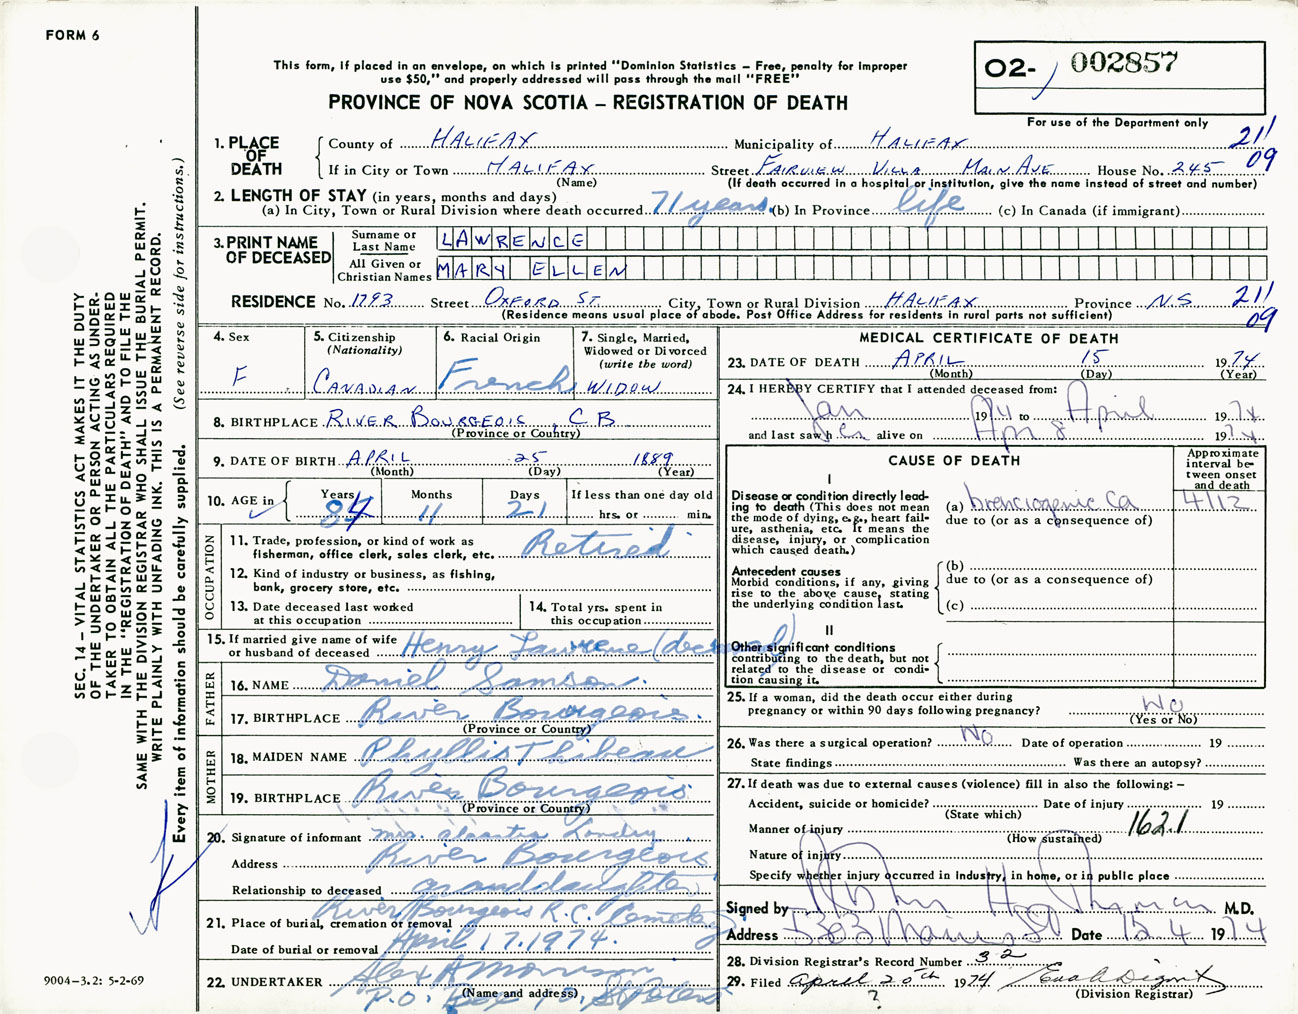 FORM 6
This form, if placed in an envelope, on which is printed "Dominion Statistics – Free, penalty for improper
use $50," and properly addressed will pass through the mail "FREE"
PROVINCE OF NOVA SCOTIA – REGISTRATION OF DEATH
02- 002857
For use of the Department only
SEC. 14 – VITAL STATISTICS ACT MAKES IT THE DUTY
OF THE UNDERTAKER OR PERSON ACTING AS UNDER-
TAKER TO OBTAIN ALL THE PARTICULARS REQUIRED
IN THE "REGISTRATION OF DEATH" AND TO FILE THE
SAME WITH THE DIVISION REGISTRAR WHO SHALL ISSUE THE BURIAL PERMIT.
WRITE PLAINLY WITH UNFADING INK. THIS IS A PERMANENT RECORD.
Every item of information should be carefully supplied. (See reverse side for instructions.)
1. PLACE OF DEATH
County of HALIFAX Municipality of HALIFAX 211
09
If in City or Town HALIFAX Street FAIRVIEW VILLA MAIN AVE House No. 245
(Name) (If death occurred in a hospital or institution, give the name instead of street and number)
2. LENGTH OF STAY (in years, months and days)
(a) In City, Town or Rural Division where death occurred 71 years (b) In Province life (c) In Canada (if immigrant)
3. PRINT NAME OF DECEASED
Surname or Last Name LAWRENCE
All Given or Christian Names MARY ELLEN
RESIDENCE No. 1793 Street OXFORD ST City, Town or Rural Division HALIFAX Province N.S. 211
09
(Residence means usual place of abode. Post Office Address for residents in rural parts not sufficient)
4. Sex
F
5. Citizenship
(Nationality)
CANADIAN
6. Racial Origin
French
7. Single, Married,
Widowed or Divorced
(write the word)
WIDOW
8. BIRTHPLACE RIVER BOURGEOIS, CB
(Province or Country)
9. DATE OF BIRTH APRIL 25 1889
(Month) (Day) (Year)
10. AGE in Years 84 Months 11 Days 21 If less than one day old
hrs. or min.
OCCUPATION
11. Trade, profession, or kind of work as
fisherman, office clerk, sales clerk, etc. Retired
12. Kind of industry or business, as fishing,
bank, grocery store, etc.
13. Date deceased last worked
at this occupation
14. Total yrs. spent in
this occupation
15. If married give name of wife
or husband of deceased Henry Lawrence (deceased)
FATHER
16. NAME Daniel Samson.
17. BIRTHPLACE River Bourgeois.
(Province or Country)
MOTHER
18. MAIDEN NAME Phyllis Thibeau
19. BIRTHPLACE River Bourgeois
(Province or Country)
20. Signature of informant Mrs. Landry
Address River Bourgeois
Relationship to deceased granddaughter
21. Place of burial, cremation or removal River Bourgeois R.C. Cemetery
Date of burial or removal April 17. 1974.
22. UNDERTAKER Alex A Morrison
(Name and address) P.O. Box 10, St Peters
9004–3.2: 5-2-69
MEDICAL CERTIFICATE OF DEATH
23. DATE OF DEATH APRIL 15 1974
(Month) (Day) (Year)
24. I HEREBY CERTIFY that I attended deceased from:
Jan 1974 to April 1974
and last saw her alive on Apr 8 1974
CAUSE OF DEATH
Approximate
interval be-
tween onset
and death
I
Disease or condition directly lead-
ing to death (This does not mean
the mode of dying, e.g., heart fail-
ure, asthenia, etc. It means the
disease, injury, or complication
which caused death.)
(a) bronchogenic Ca 4/12
due to (or as a consequence of)
Antecedent causes
Morbid conditions, if any, giving
rise to the above cause, stating
the underlying condition last.
(b)
due to (or as a consequence of)
(c)
II
Other significant conditions
contributing to the death, but not
related to the disease or condi-
tion causing it.
25. If a woman, did the death occur either during
pregnancy or within 90 days following pregnancy? No
(Yes or No)
26. Was there a surgical operation? No Date of operation 19
State findings Was there an autopsy?
27. If death was due to external causes (violence) fill in also the following: –
Accident, suicide or homicide? Date of injury 19
(State which)
Manner of injury 162.1
(How sustained)
Nature of injury
Specify whether injury occurred in industry, in home, or in public place
Signed by M.D.
Address Date 15 4 1974
28. Division Registrar's Record Number 32
29. Filed April 20th 1974
(Division Registrar)
?